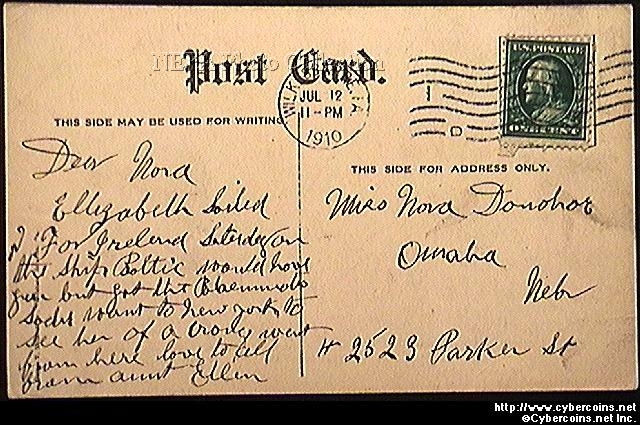 NEPA Photo Collection
Post Card.
U.S. POSTAGE
ONE CENT
WILK PA
JUL 12
11-PM
1910
1
D
THIS SIDE MAY BE USED FOR WRITING
THIS SIDE FOR ADDRESS ONLY.
Dear Nora
Ellizabeth Sailed
For Ireland Saterday on
the Ship Baltic would have
but got the
want to New york to
see her of a croud went
from here love to all
From aunt Ellen
Miss Nora Donohoe
Omaha
Nebr
# 2523 Parker St
http://www.cybercoins.net
©Cybercoins.net Inc.